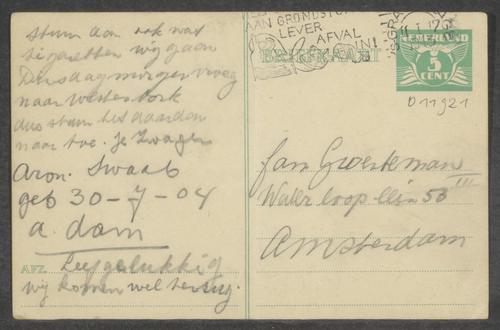 stuur dan ook wat
sigaretten wij gaan
Dinsdagmorgen vroeg
naar Westerbork
dus stuur het daarden
naar toe. Je Zwager
Aron. Swaab
geb 30-7-04
a. dam
AFZ. Leef gelukkig
wij komen wel terug.
AAN GRONDSTOF
LEVER
AFVAL
IN!
BRIEFKAART
NEDERLAND
5
CENT
D11921
Jan Groeteman
Waterlooplein 58 III
Amsterdam